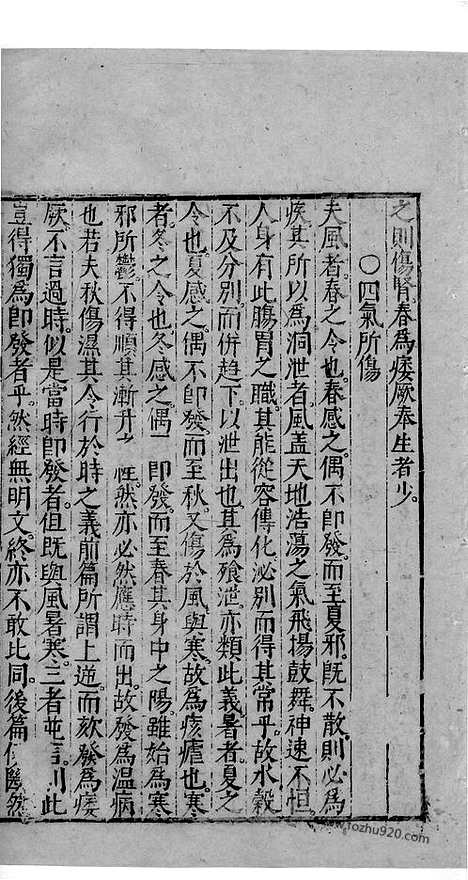 之則傷腎春為痿厥奉生者少。
○四氣所傷
夫風者春之令也。春感之偶不即發而至夏邪既不散則必為
疾其所以為洞泄者風蓋天地浩蕩之氣飛揚鼓舞。神速不恒。
人身有此腸胃之職。其能從容傳化泌別而得其常乎。故水穀
不及分別。而併趨下以泄出也其為飱泄。亦類此義暑者夏之
令也。夏感之偶不即發而至秋。又傷於風與寒故為痎瘧也。寒
者。冬之令也冬感之偶一即發。而至春其身中之陽雖始為寒
邪所鬱不得順其漸升之性。然亦必然應時而出。故發為温病
也若夫秋傷濕其令行於時之義前篇所謂上逆。而欬發為痿
厥。不言過時。似是當時即發者。但既與風暑寒。三者並言。此
豈得獨為即發者乎。然經無明文。終亦不敢比同。後篇然
www.fozhu920.com